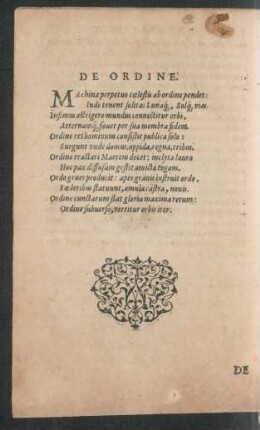 DE ORDINE.
MAchina perpetuo cœlestis ab ordine pendet:
Inde tenent solitas Lunaq́;, Solq́; vias.
Infimus astrigero mundus connectitur orbi,
Aeternamq́; fouet per sua membra fidem.
Ordine res hominum consistet publica solo:
Surgunt vnde domus, oppida, regna, tribus.
Ordine tractari Martem decet: inclyta lauru
Hoc pax diffusam gestit amicta togam.
Ordo grues producit: apes grauis instruit ordo,
Fœderibus statuunt, æmula castra, nouis.
Ordine cunctarum stat gloria maxima rerum:
Ordine subuerso, vertitur orbis iter.
DE